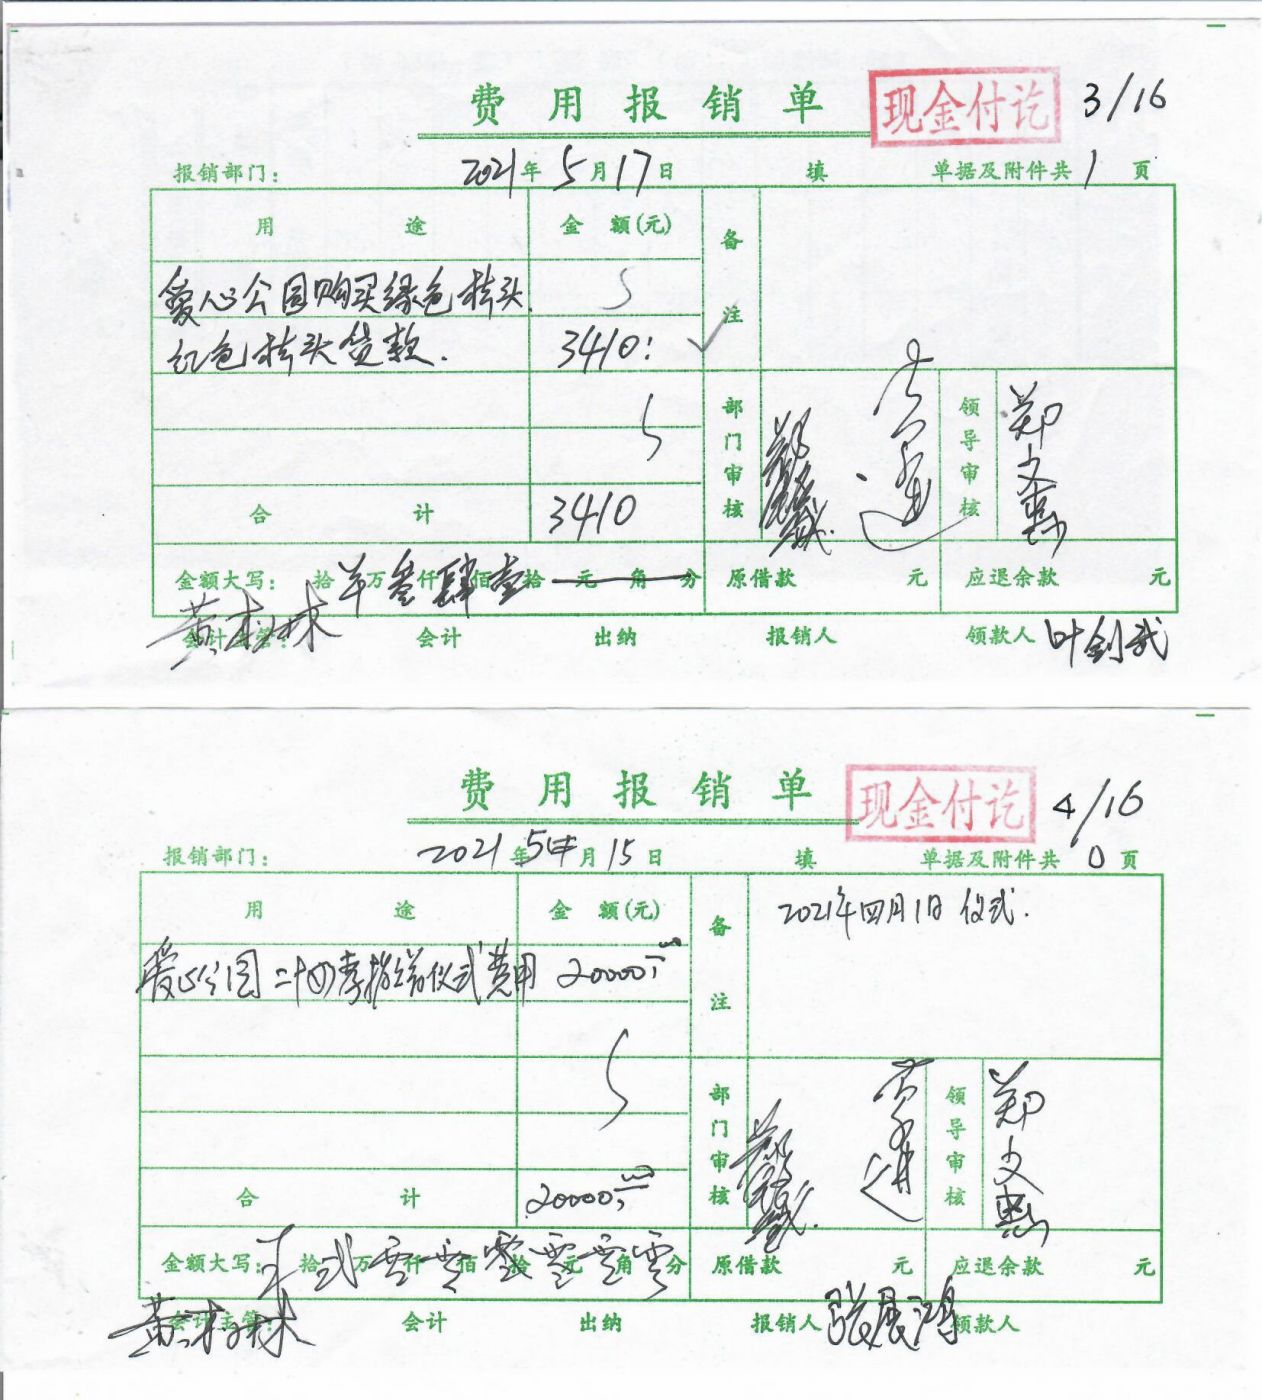 费用报销单 现金付讫 3/16
报销部门： 2021年5月17日 填 单据及附件共1页
用途 金额(元) 备注
爱心公园购买绿色桥头
红色桥头货款. 3410:
部门审核 领导审核 郑文惠
合计 3410
金额大写： 拾万叁仟肆佰壹拾元角分 原借款 元 应退余款 元
会计主管： 黄树林 会计 出纳 报销人 领款人 叶剑武
费用报销单 现金付讫 4/16
报销部门： 2021年5月15日 填 单据及附件共0页
用途 金额(元) 备注 2021年四月1日仪式.
爱心公园二十四孝捐赠仪式费用 20000
部门审核 领导审核 郑文惠
合计 20000
金额大写： 拾贰万零仟零佰零拾零元零角零分 原借款 元 应退余款 元
会计主管： 黄树林 会计 出纳 报销人 张展鸿 领款人